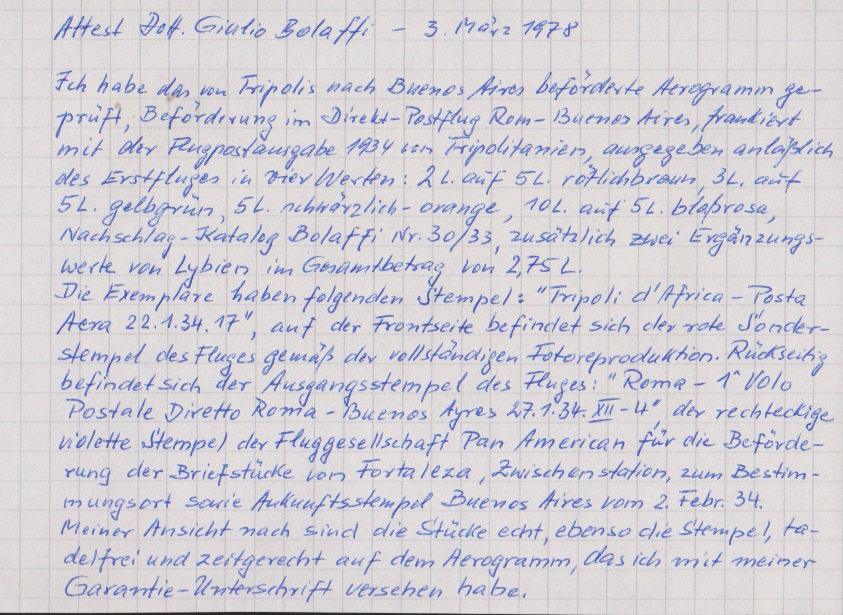 Attest Dott. Giulio Bolaffi – 3. März 1978
Ich habe das von Tripolis nach Buenos Aires beförderte Aerogramm ge-
prüft, Beförderung im Direkt-Postflug Rom-Buenos Aires, frankiert
mit der Flugpostausgabe 1934 von Tripolitanien, ausgegeben anläßlich
des Erstfluges in vier Werten: 2 L. auf 5 L. rötlichbraun, 3 L. auf
5 L. gelbgrün, 5 L. schwärzlich-orange, 10 L. auf 5 L. blaßrosa,
Nachschlag-Katalog Bolaffi Nr. 30/33, zusätzlich zwei Ergänzungs-
werte von Lybien im Gesamtbetrag von 2,75 L.
Die Exemplare haben folgenden Stempel: "Tripoli d'Africa – Posta
Aera 22.1.34.17", auf der Frontseite befindet sich der rote Sonder-
stempel des Fluges gemäß der vollständigen Fotoreproduktion. Rückseitig
befindet sich der Ausgangsstempel des Fluges: "Roma – 1^ Volo
Postale Diretto Roma – Buenos Ayres 27.1.34. XII – 4", der rechteckige
violette Stempel der Fluggesellschaft Pan American für die Beförde-
rung der Briefstücke von Fortaleza, Zwischenstation, zum Bestim-
mungsort sowie Ankunftsstempel Buenos Aires vom 2. Febr. 34.
Meiner Ansicht nach sind die Stücke echt, ebenso die Stempel, ta-
delfrei und zeitgerecht auf dem Aerogramm, das ich mit meiner
Garantie-Unterschrift versehen habe.